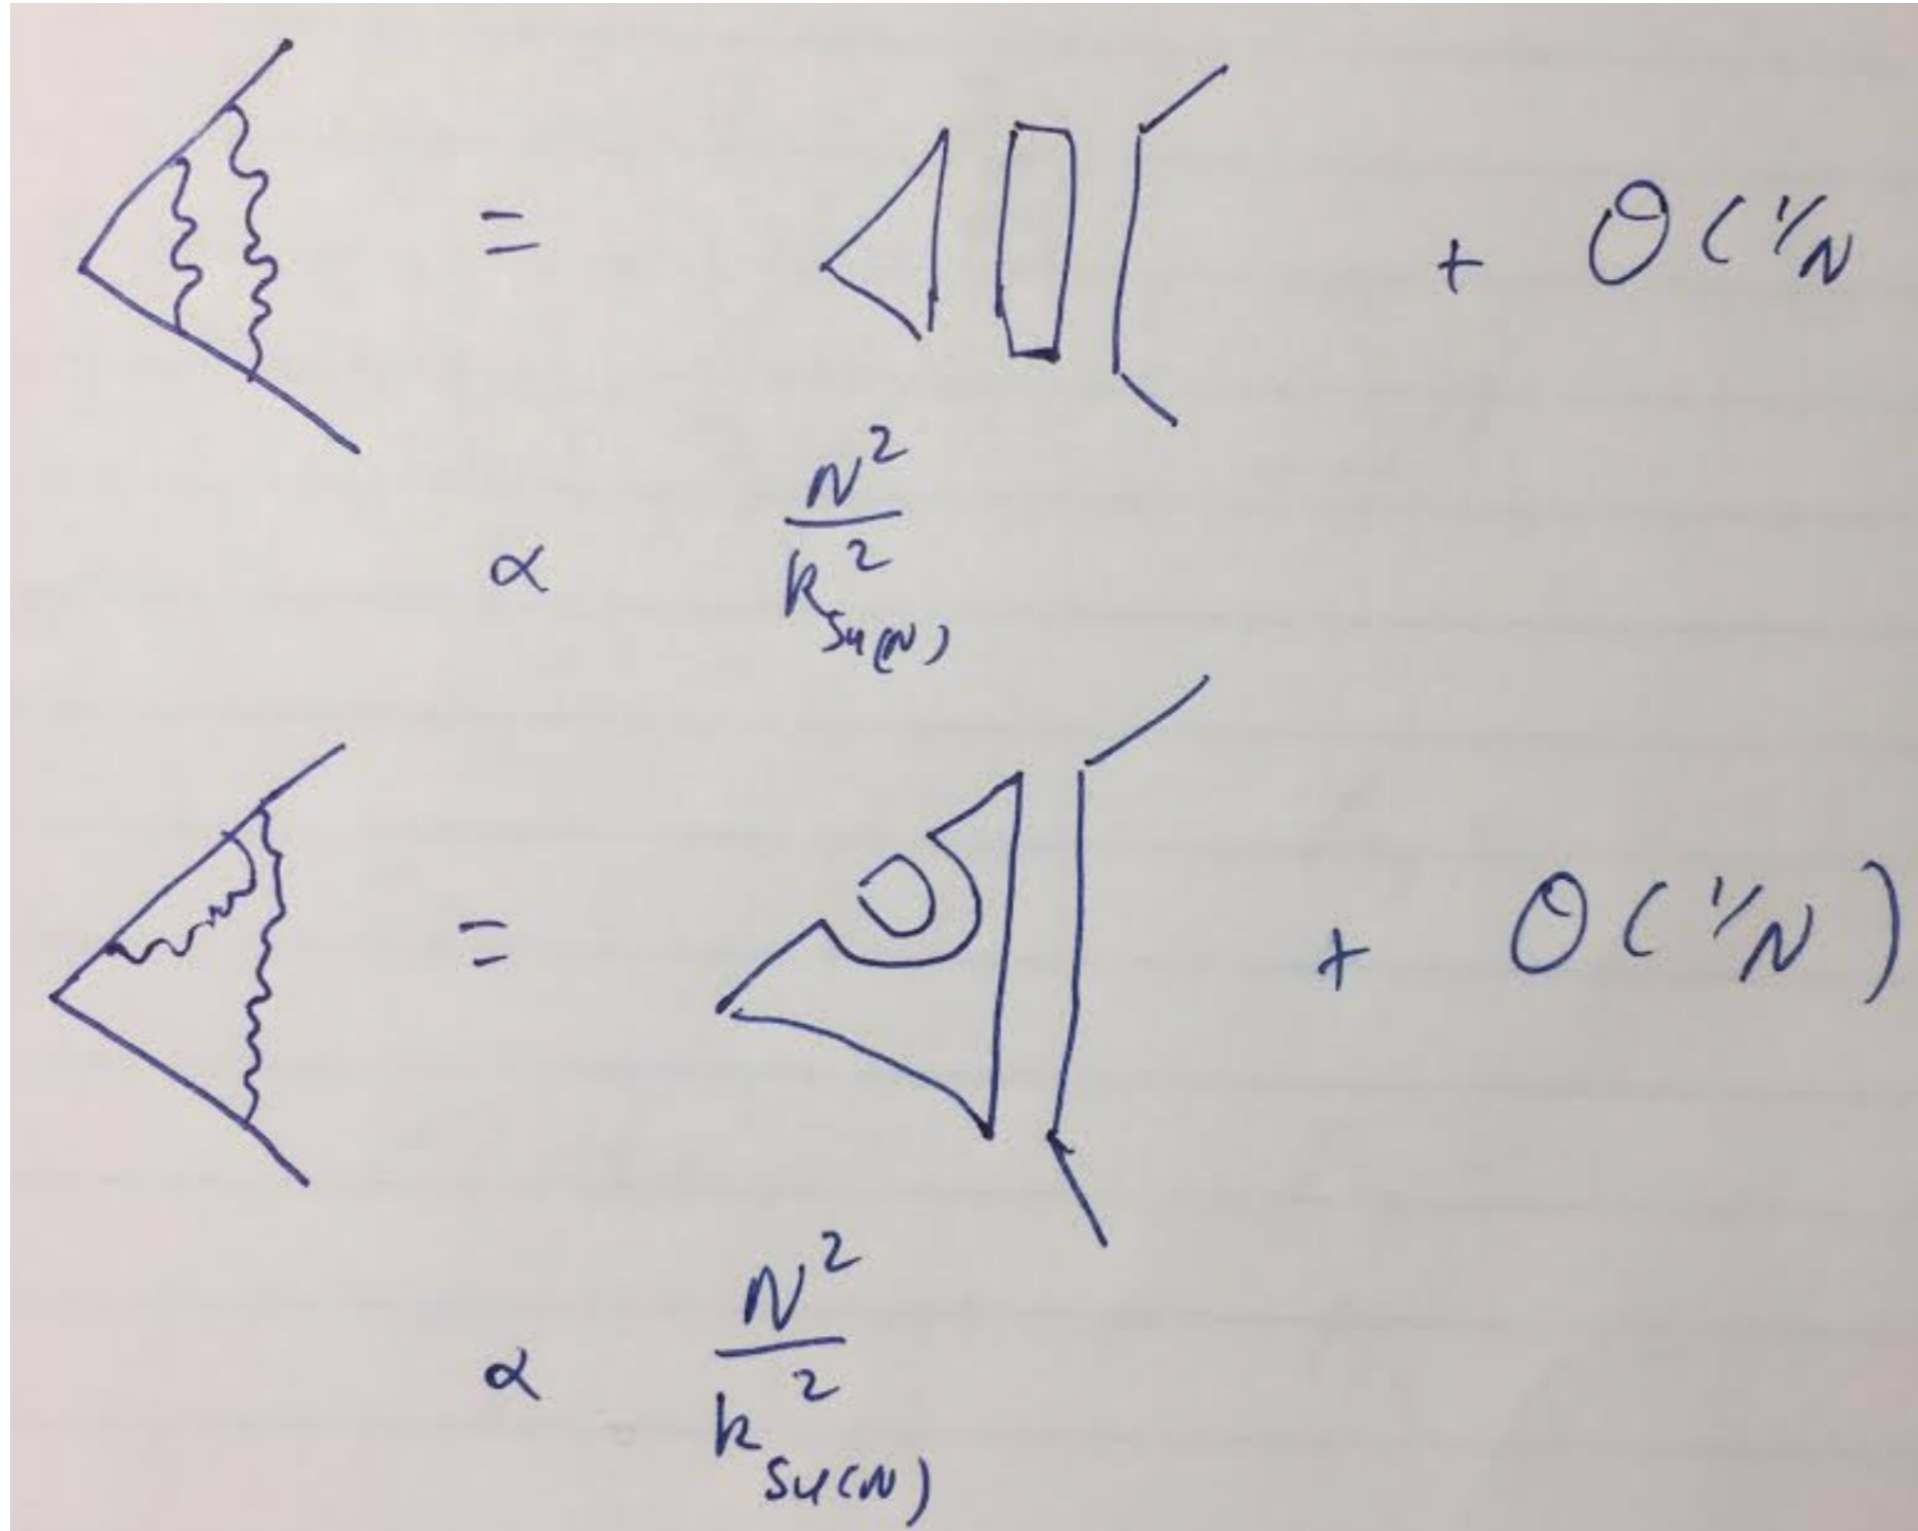 = + O(1/N
∝ N²/k²_SU(N)
= + O(1/N)
∝ N²/k²_SU(N)